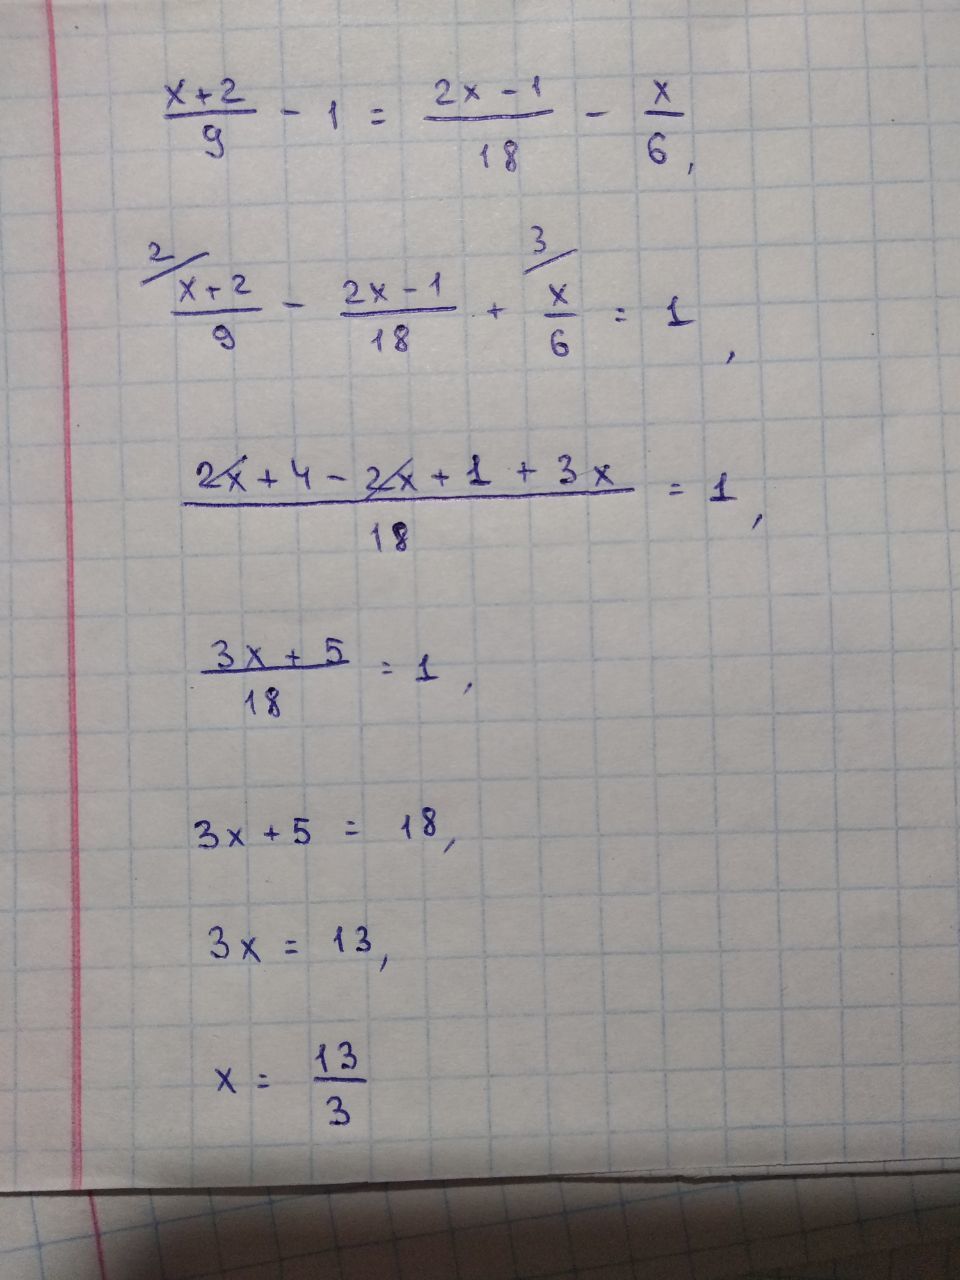 (x+2)/9 - 1 = (2x-1)/18 - x/6,
2/ (x+2)/9 - (2x-1)/18 + 3/ x/6 = 1,
(2x+4-2x+1+3x)/18 = 1,
(3x+5)/18 = 1,
3x+5 = 18,
3x = 13,
x = 13/3